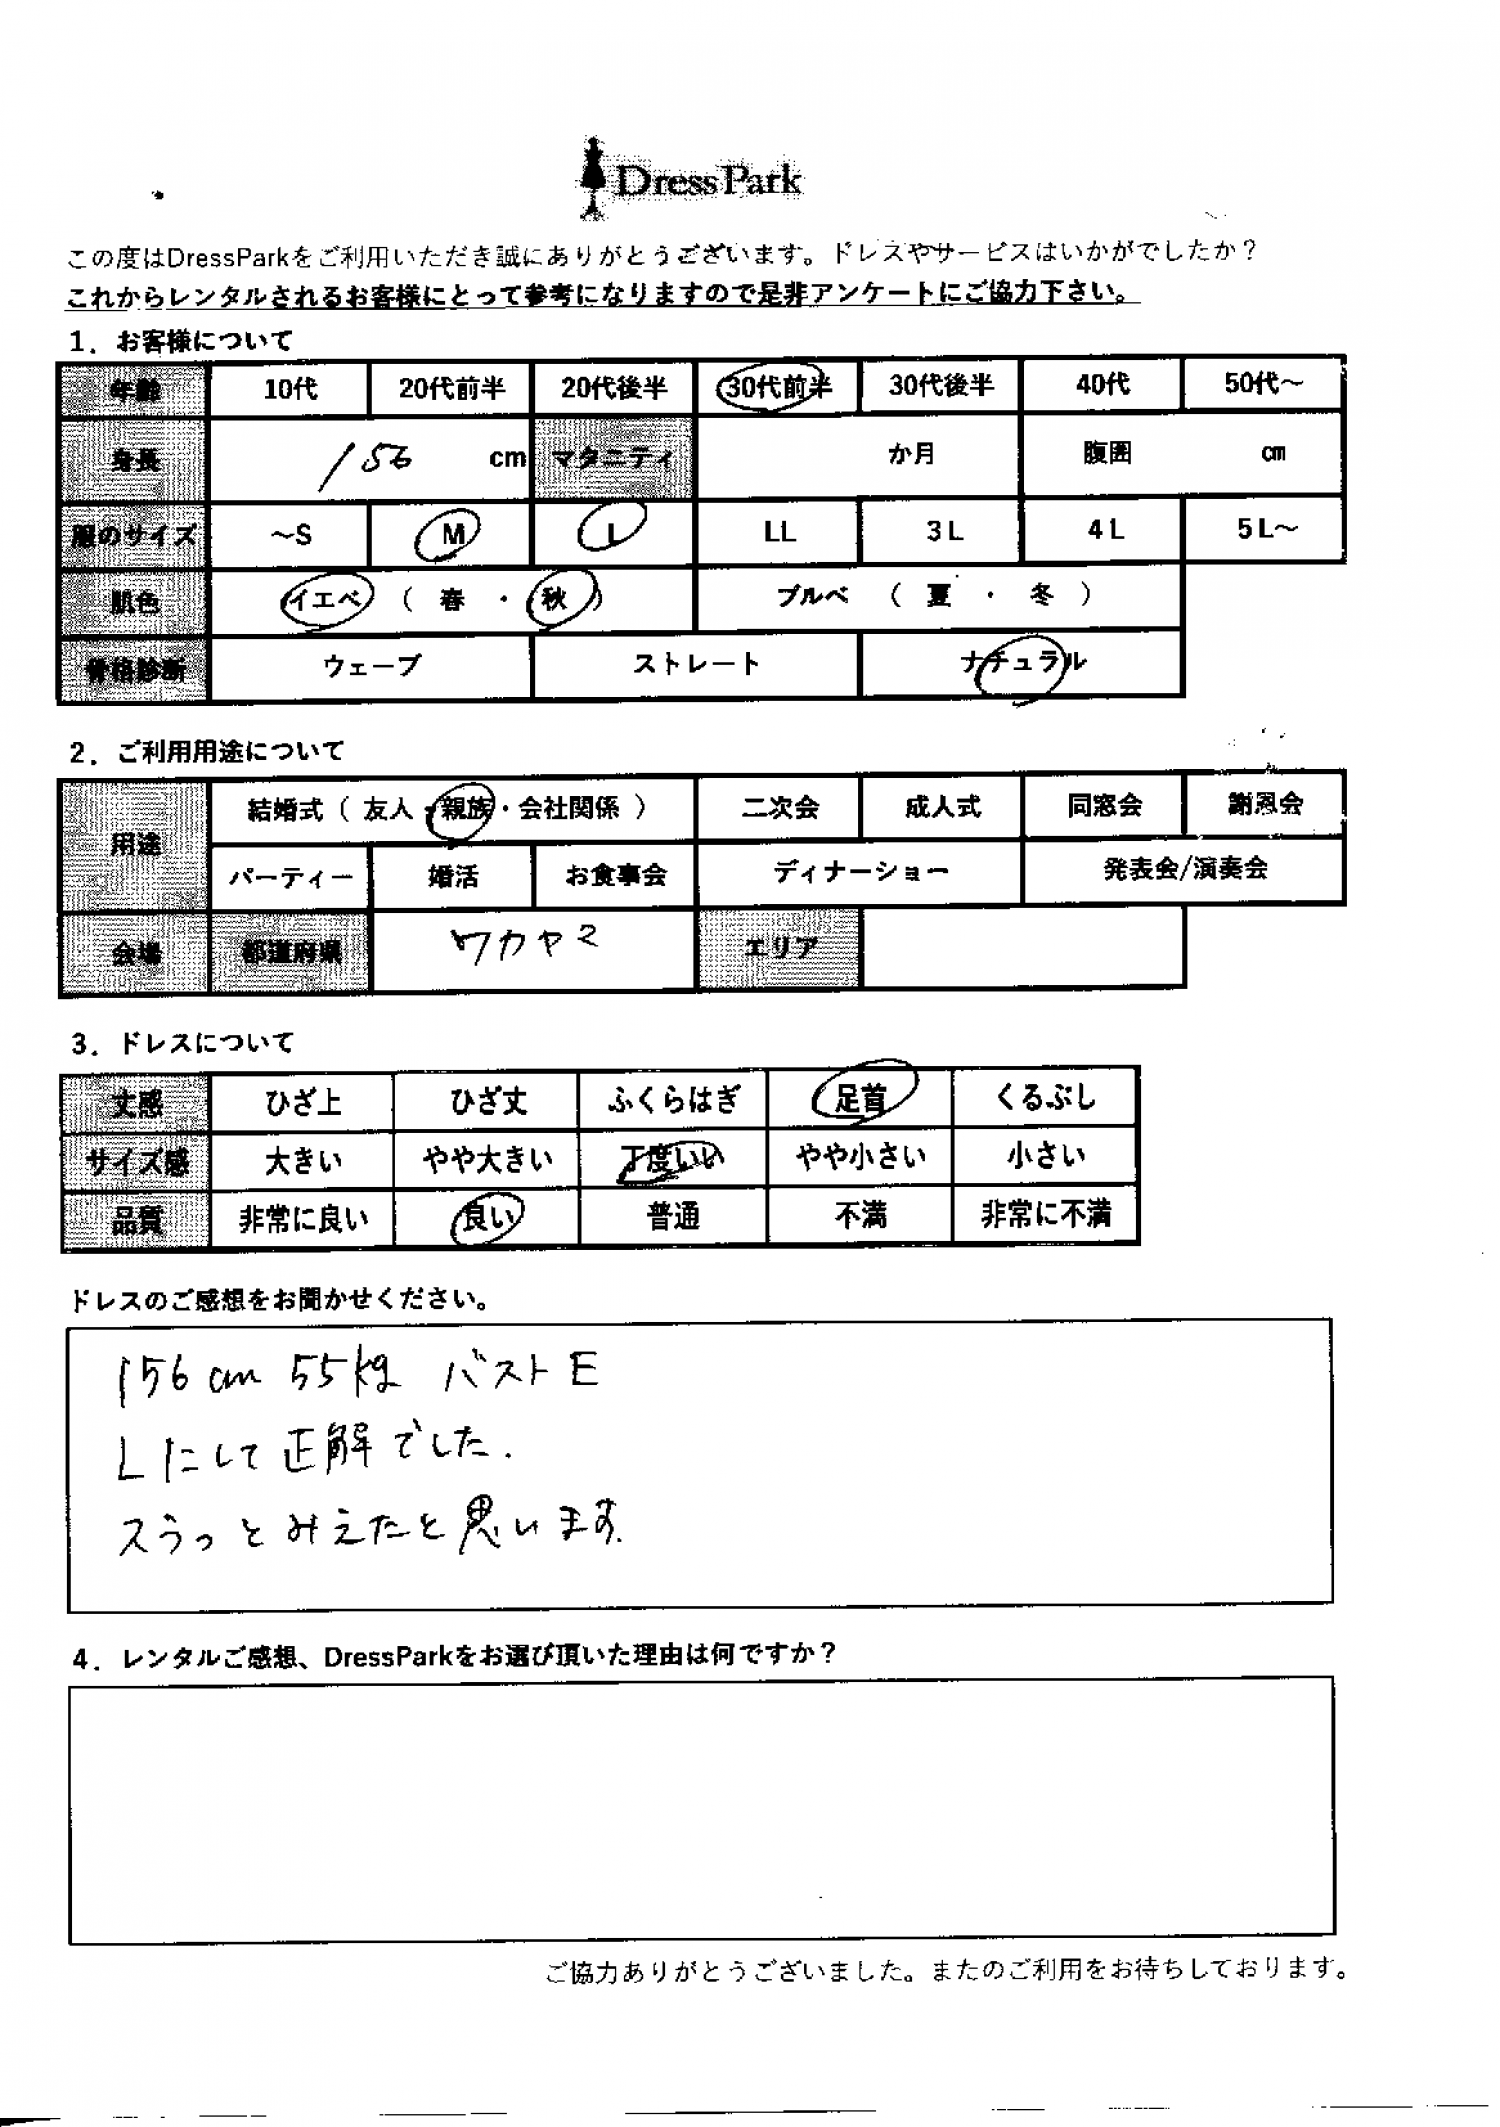 DressPark
この度はDressParkをご利用いただき誠にありがとうございます。ドレスやサービスはいかがでしたか？
これからレンタルされるお客様にとって参考になりますので是非アンケートにご協力下さい。
1．お客様について
年齢 10代 20代前半 20代後半 30代前半 30代後半 40代 50代～
身長 156 cm マタニティ か月 腹囲 cm
服のサイズ ～S M L LL 3L 4L 5L～
肌色 イエベ （ 春 ・ 秋 ） ブルベ （ 夏 ・ 冬 ）
骨格診断 ウェーブ ストレート ナチュラル
2．ご利用用途について
用途 結婚式（ 友人・親族・会社関係 ） 二次会 成人式 同窓会 謝恩会
パーティー 婚活 お食事会 ディナーショー 発表会/演奏会
会場 都道府県 ワカヤマ エリア
3．ドレスについて
丈感 ひざ上 ひざ丈 ふくらはぎ 足首 くるぶし
サイズ感 大きい やや大きい 丁度いい やや小さい 小さい
品質 非常に良い 良い 普通 不満 非常に不満
ドレスのご感想をお聞かせください。
156cm 55kg バストE
Lにして正解でした.
スラっとみえたと思います.
4．レンタルご感想、DressParkをお選び頂いた理由は何ですか？
ご協力ありがとうございました。またのご利用をお待ちしております。